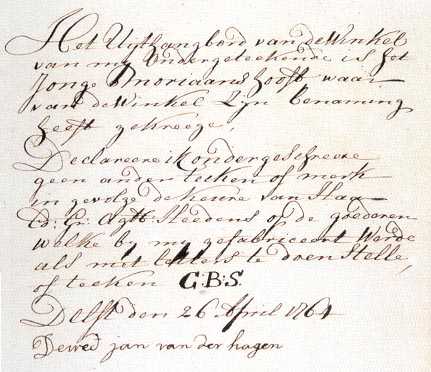 Het Uijthangbord van de Winkel
van mij Ondergeteekende is het
Jonge Moriaans hooft waar
van de Winkel Zijn benaming
heeft gekreege,
Declareere ik ondergeschreeve
geen ander teeken of merk
in gevolge de keure van Haar
Ed: Gr: Agtb: Heeren op de goederen
welke by my gefabriceert Werde
als met letters te doen Stelle,
of teeken C:B:S.
Delft den 26 April 1764
De wed jan van der hagen